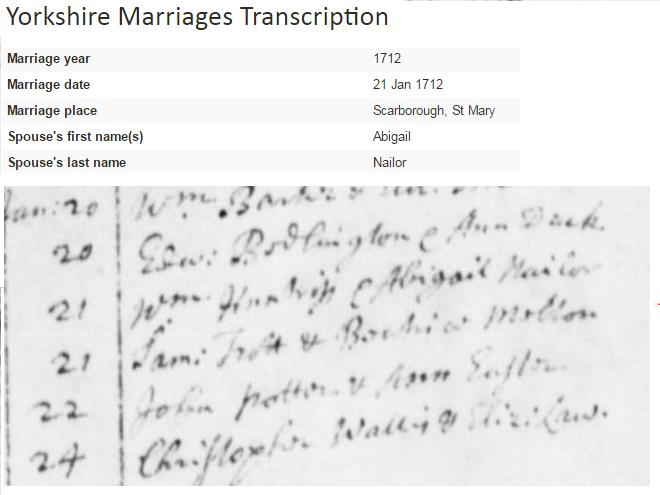 Yorkshire Marriages Transcription
Marriage year 1712
Marriage date 21 Jan 1712
Marriage place Scarborough, St Mary
Spouse's first name(s) Abigail
Spouse's last name Nailor
Jan: 20 Wm.
20 Edw: Bodlington & Ann Duck.
21 Wm. & Abigail Nailor
21 Sam: Trott & Molton
22 John Potter & Ann
24 Christopher Wallis & Eliz: Law.